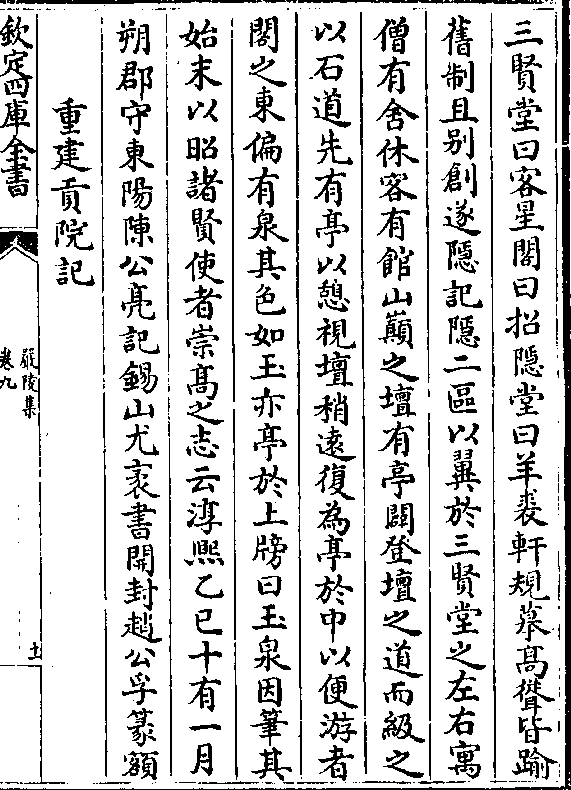 三賢堂曰客星閣曰招隱堂曰羊裘軒規摹髙聳皆踰
舊制且别創遂隱記隱二區以翼於三賢堂之左右寓
僧有舍休容有館山巔之壇有亭闢登壇之道而級之
以石道先有亭以憩視壇稍逺復為亭於中以便游者
閣之東偏有泉其色如玉亦亭於上牓曰玉泉因筆其
始末以昭諸賢使者崇髙之志云淳熈乙巳十有一月
朔郡守東陽陳公亮記錫山尤袤書開封趙公孚篆額
重建貢院記
欽定四庫全書
嚴陵集
卷九